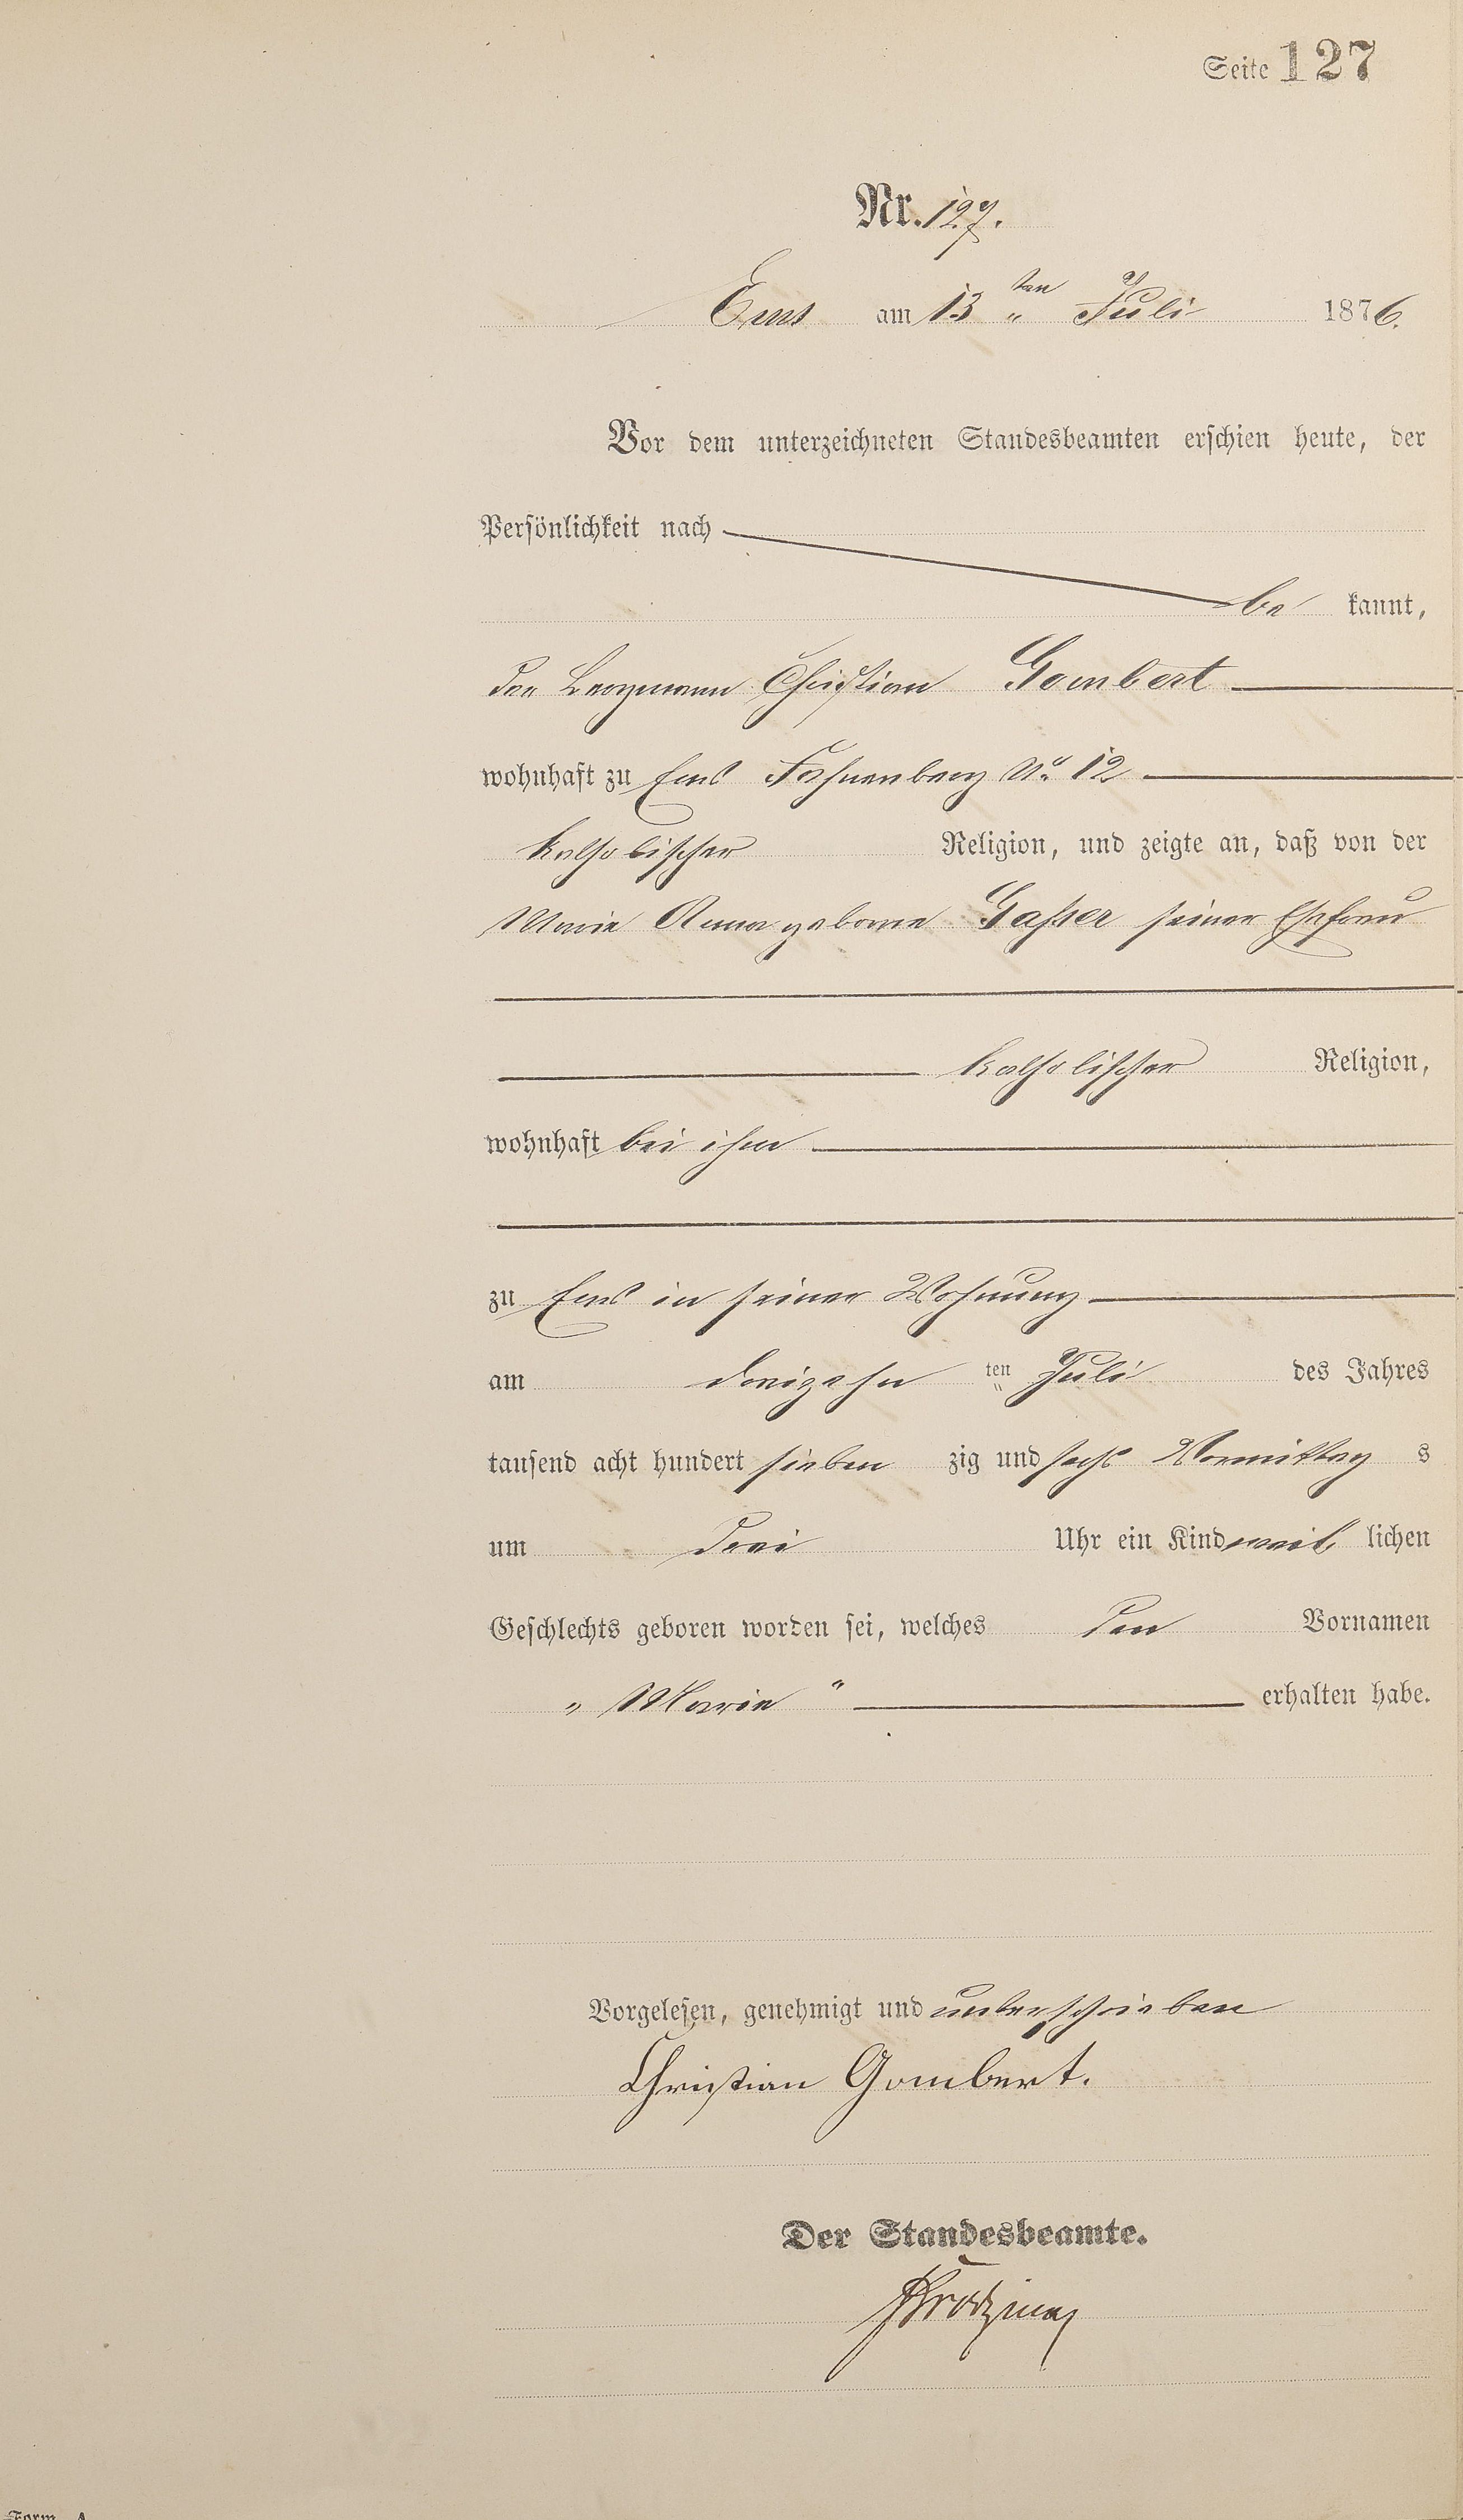 Seite 127
Nr. 127.
Ems am 13 ten Juli 1876.
Vor dem unterzeichneten Standesbeamten erschien heute, der
Persönlichkeit nach
be kannt,
der Bergmann Christian Gombert
wohnhaft zu Ems No. 12
katholischer Religion, und zeigte an, daß von der
Marie Anna geborne Gasser seiner Ehefrau
katholischer Religion,
wohnhaft bei ihm
zu Ems in seiner Wohnung
am dreizehn ten Juli des Jahres
tausend acht hundert sieben zig und sechs Vormittag s
um drei Uhr ein Kind weib lichen
Geschlechts geboren worden sei, welches den Vornamen
„ Marie " erhalten habe.
Vorgelesen, genehmigt und unterschrieben
Christian Gombert.
Der Standesbeamte.